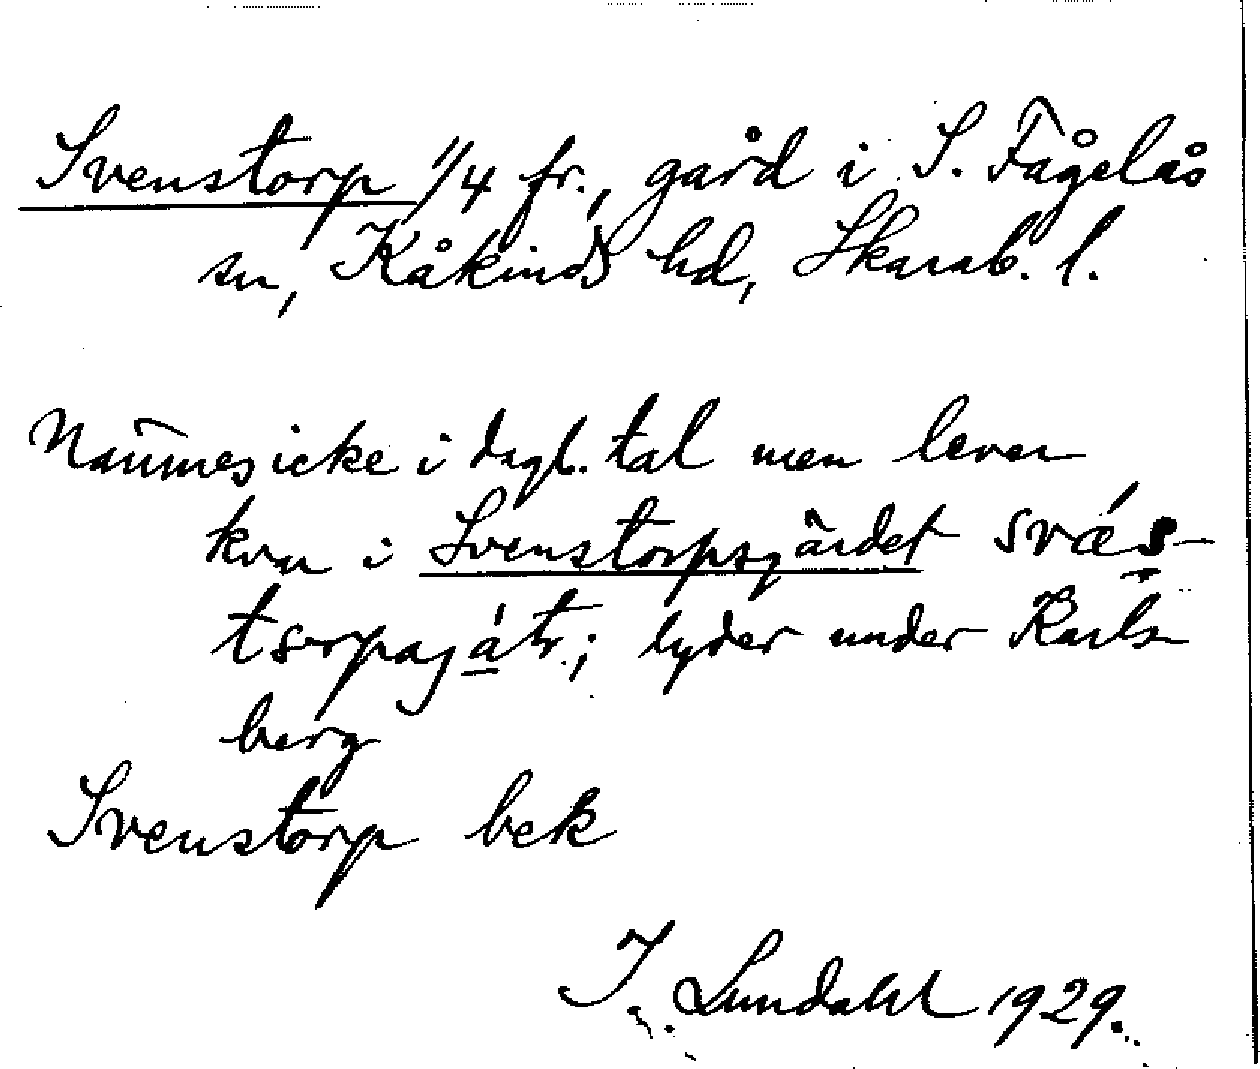 Svenstorp 1/4 fr., gård i S. Fågelås
sn, Kåkinds hd, Skarab. l.
Namnes icke i dagl. tal men lever
kvar i Svenstorpsgärdet svæ´s-
tsorpagá̱tr.; lyder under Karls
berg
Svenstorp bek
I. Lundahl 1929.